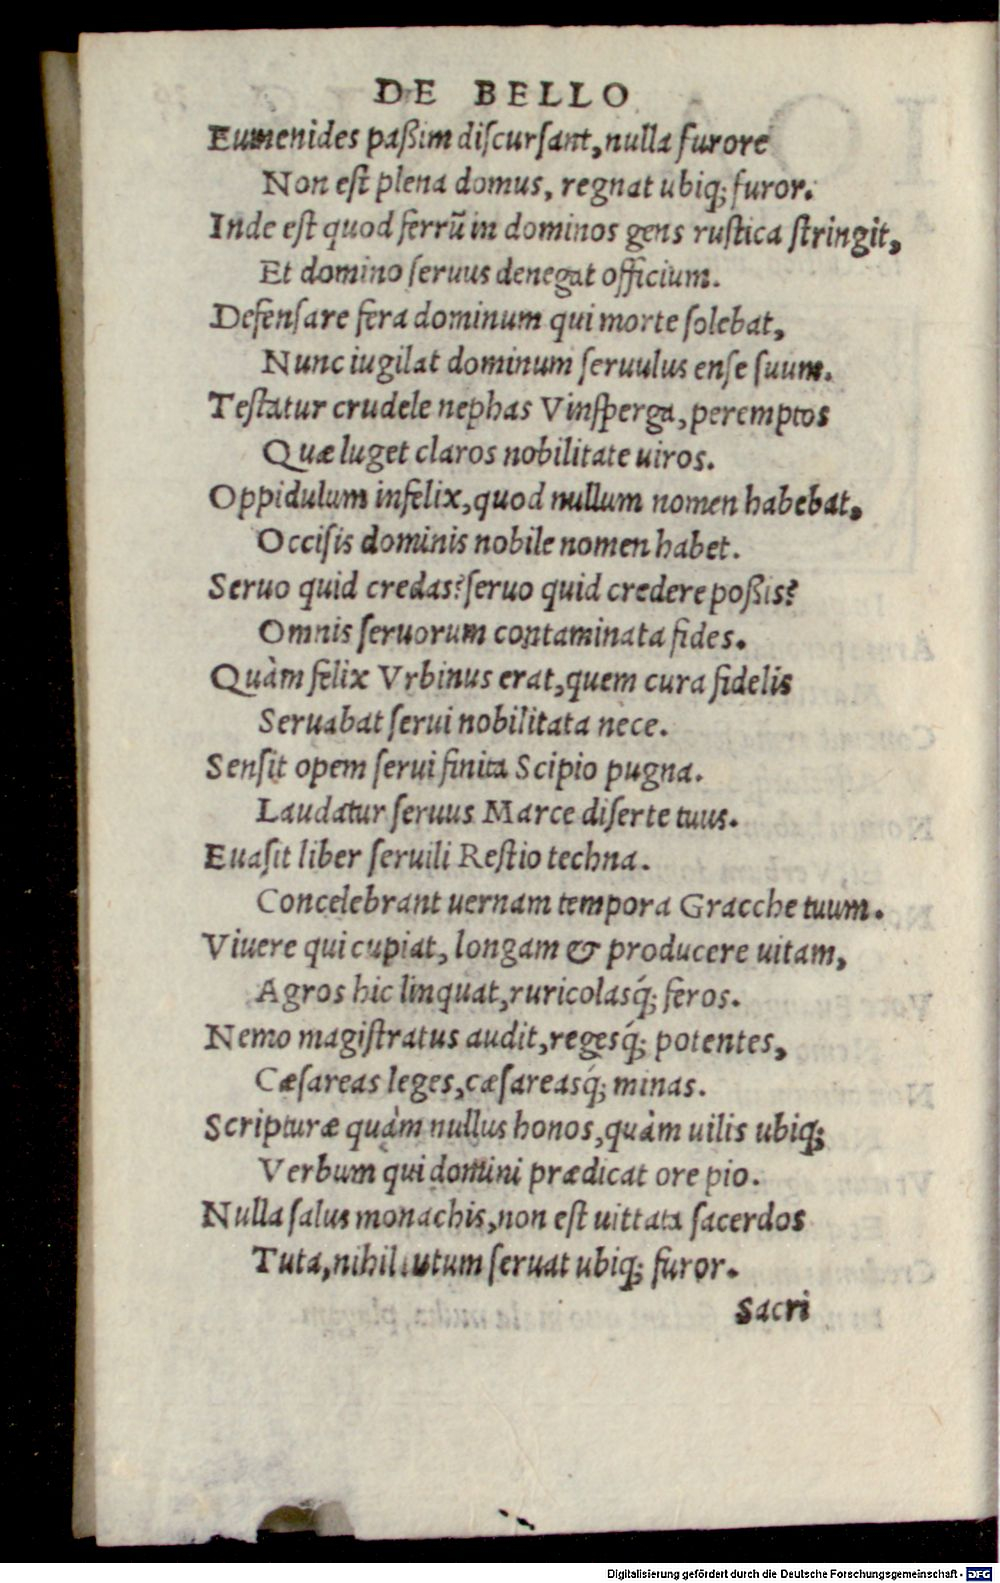 DE BELLO
Eumenides paßim diſcurſant, nulla furore
Non eſt plena domus, regnat ubiq; furor.
Inde eſt quod ferrũ in dominos gens ruſtica ſtringit,
Et domino ſeruus denegat officium.
Defenſare fera dominum qui morte ſolebat,
Nunc iugilat dominum ſeruulus enſe ſuum.
Teſtatur crudele nephas Vinſperga, peremptos
Quæ luget claros nobilitate uiros.
Oppidulum infelix, quod nullum nomen habebat,
Occiſis dominis nobile nomen habet.
Seruo quid credas? ſeruo quid credere poßis?
Omnis ſeruorum contaminata fides.
Quàm felix Vrbinus erat, quem cura fidelis
Seruabat ſerui nobilitata nece.
Senſit opem ſerui finita Scipio pugna.
Laudatur ſeruus Marce diſerte tuus.
Euaſit liber ſeruili Reſtio techna.
Concelebrant uernam tempora Gracche tuum.
Viuere qui cupiat, longam & producere uitam,
Agros hic linquat, ruricolasq́; feros.
Nemo magiſtratus audit, regesq́; potentes,
Cæſareas leges, cæſareasq́; minas.
Scripturæ quàm nullus honos, quàm uilis ubiq;
Verbum qui domini prædicat ore pio.
Nulla ſalus monachis, non eſt uittata ſacerdos
Tuta, nihil tutum ſeruat ubiq; furor.
Sacri
Digitalisierung gefördert durch die Deutsche Forschungsgemeinschaft - DFG